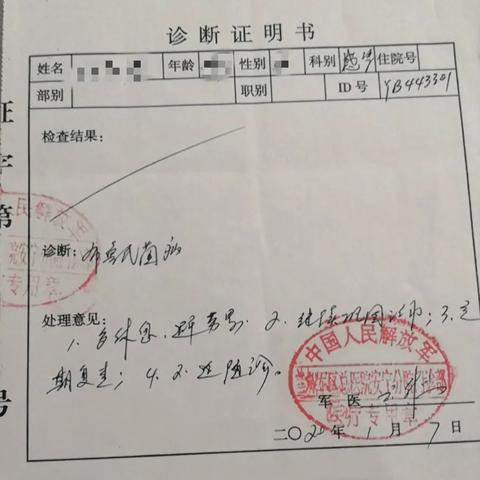 诊断证明书
姓名 年龄 性别 科别 感染 住院号
部别 职别 ID号 YB443301
检查结果:
诊断: 布鲁氏菌病
处理意见:
1. 多休息, 避免劳累. 2. 继续巩固治疗; 3. 定
期复查; 4. 不适随诊。
中国人民解放军
医疗专用章
军医
二〇20年1月7日
证
字
第
号
人民解放
院安宁分
专用章